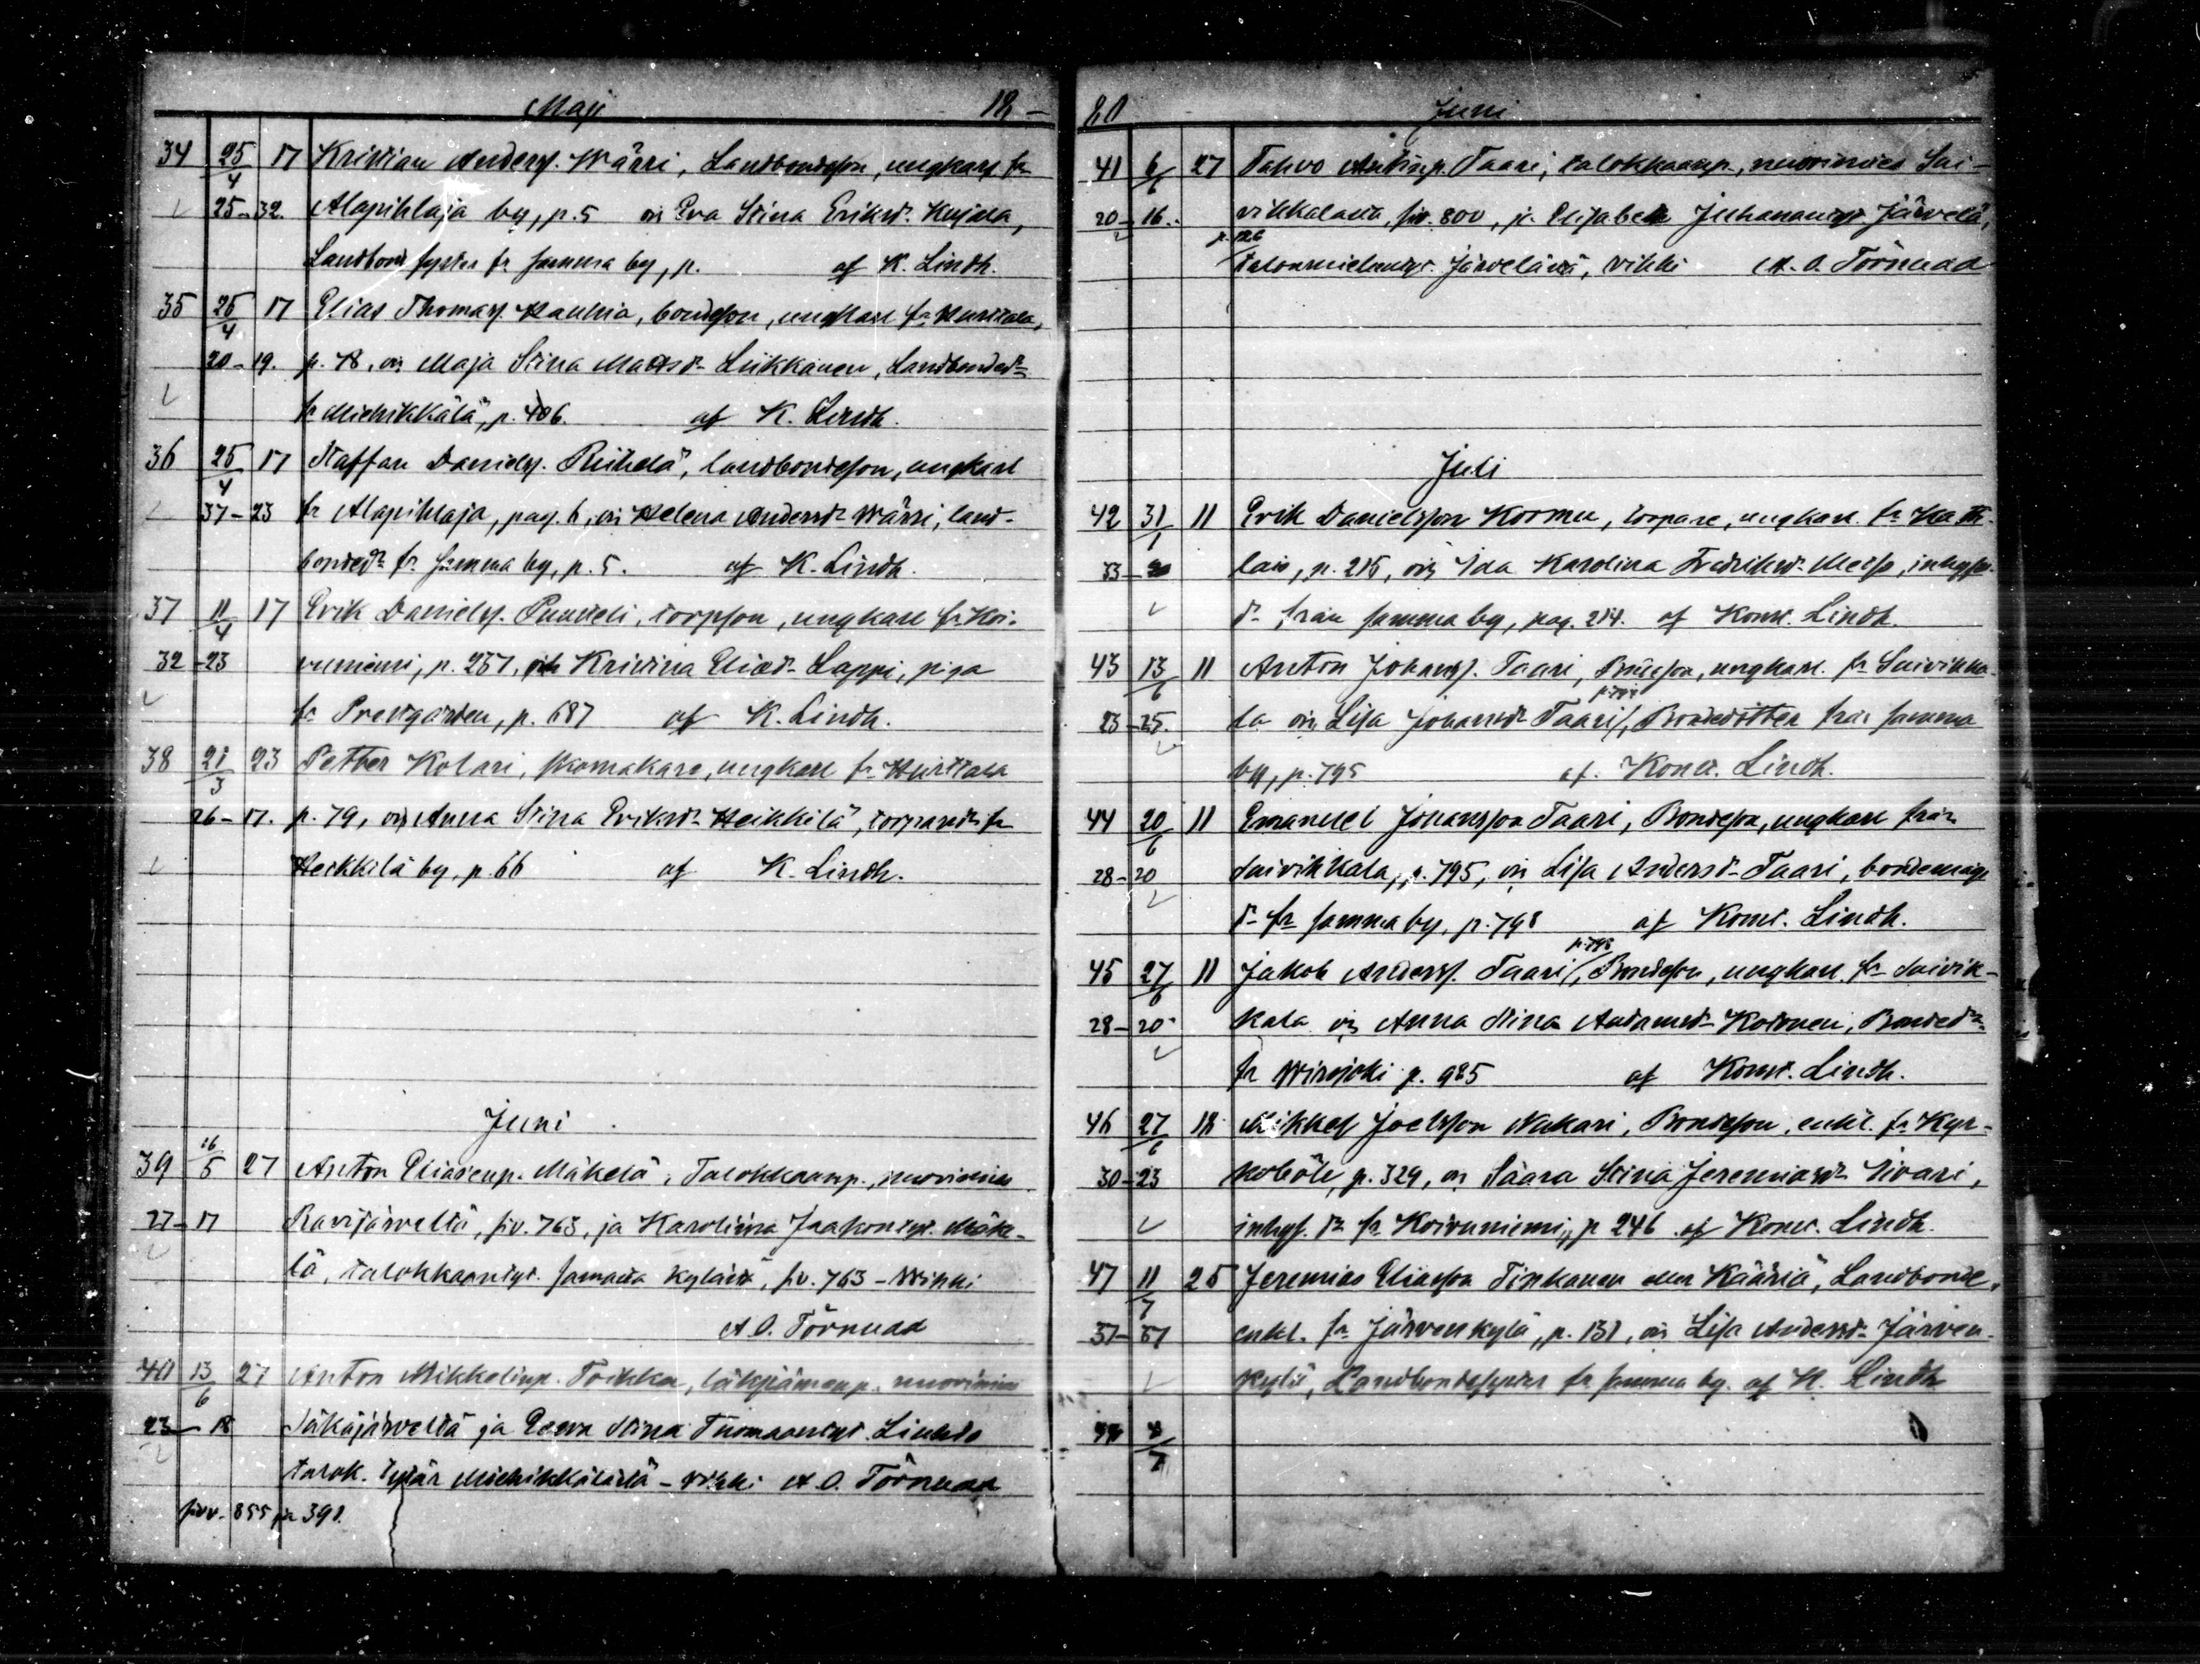 Maji 18 -
34 25/4 17 Kristian Anderss. Wärri, Landbondeson, ungkarl fr
25-32. Alapihlaja by, p. 5 o Eva Stina Eriksdr Kujala,
Landbond syster fr samma by, p. af K. Lindh.
35 25/4 17 Elias Thomass. Haukia, bondeson, ungkarl fr Hurttala,
20-19. p. 78, o Maja Stina Mattsdr Liikkanen, Landbondedr
fr Miehikkälä, p. 406. af K. Lindh.
36 25/4 17 Staffan Daniels. Riihelä, landbondeson, ungkarl
37-23 fr Alapihlaja, pag. 6, o Helena Andersdr Wärri, land-
bondedr fr samma by, p. 5. af K. Lindh.
37 11/4 17 Erik Daniels. Punteli, torpson, ungkarl fr Koi-
32-23 vuniemi, p. 257, o Kristina Eliædr Lappi, piga
fr Prestgården, p. 687 af K. Lindh.
38 21/3 23 Petter Kolari, skomakare, ungkarl fr Hurttala
26-17. p. 79, o Anna Stina Eriksdr Heikkilä, torparedr fr
Heikkilä by, p. 66 af K. Lindh.
Juni
39 16/5 27 Anton Eliaxenp. Mäkelä, Talokkaanp., nuorimies
27-17 Ravijärveltä, siv. 763, ja Karoliina Jaakontyt. Mäke-
lä, talokkaantyt. samasta kylästä, siv. 763 - Wihki
A. O. Törnudd
40 13/6 27 Anton Mikkelinp. Toikka, lohkojämenp. nuorimies
23-18 Säkäjärveltä ja Eeva Stina Tuomaantyt. Liukko
talok. tytär Miehikkälästä - Vihki A. O. Törnudd
sivv. 855 ja 391.
80 Juni
41 6/6 27 Tahvo Antinp. Taari, talokkaanp., nuorimies Sai-
20-16. vikkalasta, siv. 800, ja Elisabet Juhanantyt Järvelä,
p. 126
talonmiehentyt. Järvelästä, vihki A. O. Törnudd
Juli
42 31/1 11 Erik Danielsson Kormu, torpare, ungkarl fr Katt-
33- lais, p. 215, o Ida Karolina Fredriksdr Meiss, inhyses
dr från samma by, pag. 214. af Konr. Lindh.
43 13/6 11 Anton Johanss. Taari, Bondeson, ungkarl fr Saivikka-
23-25. la o Lisa Johansdr Taari, Bondedotter från samma
by, p. 795 af Konr. Lindh.
44 20/6 11 Emanuel Johansson Taari, Bondeson, ungkarl från
28-20 Saivikkala, p. 795, o Lisa Andersdr Taari, bondemågs
dr fr samma by, p. 798 af Konr. Lindh.
p. 798
45 27/6 11 Jakob Anderss. Taari, Bondeson, ungkarl fr Saivik-
28-20 kala o Anna Stina Adamsdr Koivuen, Bondedr
fr Wirojoki p. 985 af Konr. Lindh.
46 27/6 18 Mikkel Joelsson Nukari, Bondeson, enkl. fr Kyr-
30-23 koböle, p. 329, o Saara Stina Jeremiasdr Sivari,
inhys. dr fr Koivuniemi, p 246 af Konr. Lindh.
47 11/7 25 Jeremias Eliasson Tinkanen eller Kääriä, Landbonde,
57-51 enkl. fr Järvenkylä, p. 131, o Lisa Andersdr Järven-
kylä, Landbondesyster fr samma by. af K. Lindh